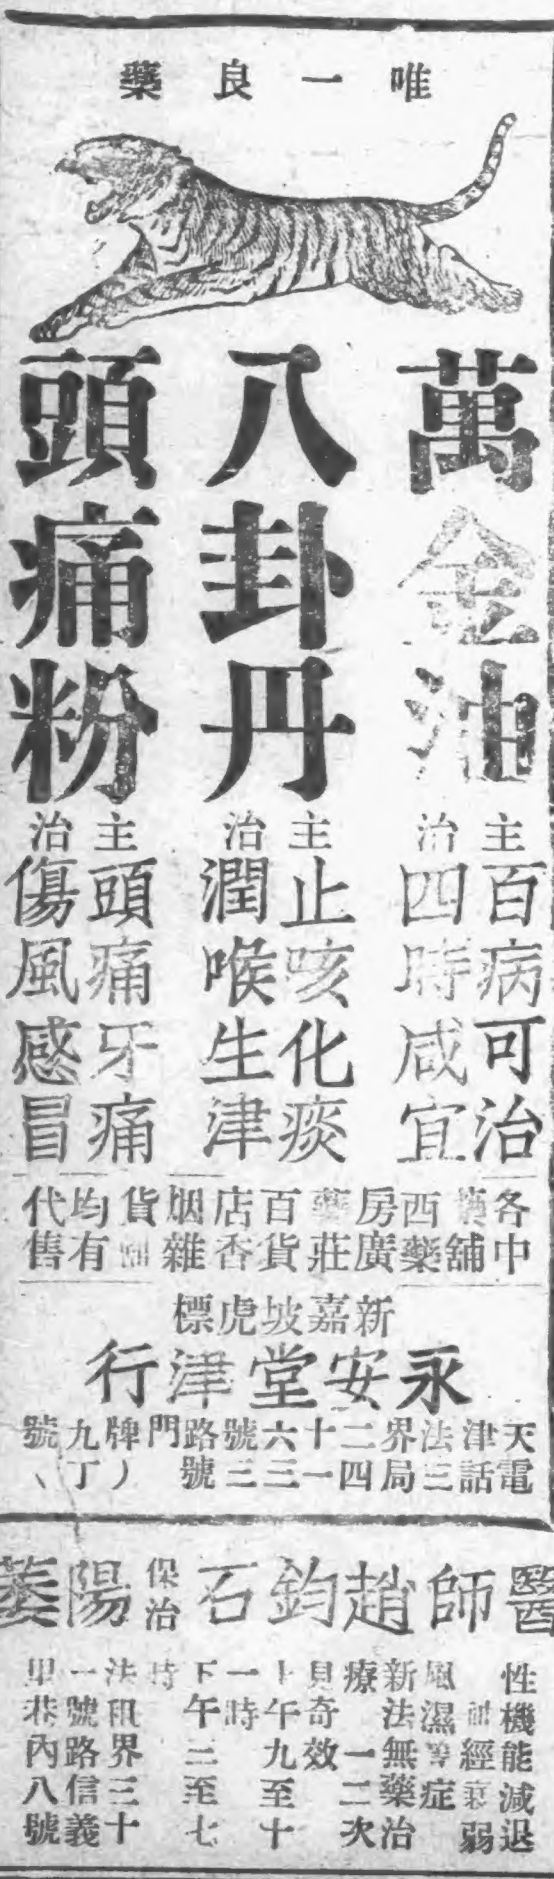 唯一良藥
萬金油
主治
百病可治
四時咸宜
八卦丹
主治
止咳化痰
潤喉生津
頭痛粉
主治
頭痛牙痛
傷風感冒
各中藥舖西藥房廣藥莊百貨店香烟雜貨舖均有代售
新嘉坡虎標
永安堂津行
天津法界二十六號路門牌九號
電話三局四一三三號
醫師趙鈞石保治陽萎
性機能減退
神經衰弱
風濕等症
新法無藥治
療 一二次
見奇效
上午九至十
一時
下午二至七
時
法租界三十
一號路信義
里巷內八號